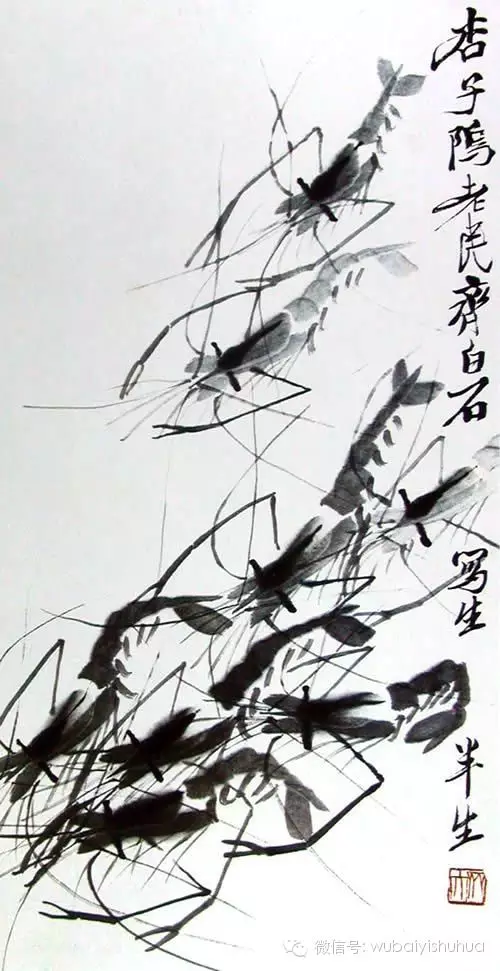 杏子隖老民齊白石 寫生 半生
微信号: wubaiyishuhua